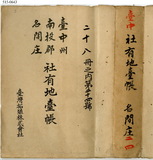 515-0643
臺中 社有地臺帳 名間庄 二四
二十八冊之内第二十四號
臺中州
南投郡 社有地臺帳
名間庄
臺灣拓殖株式會社